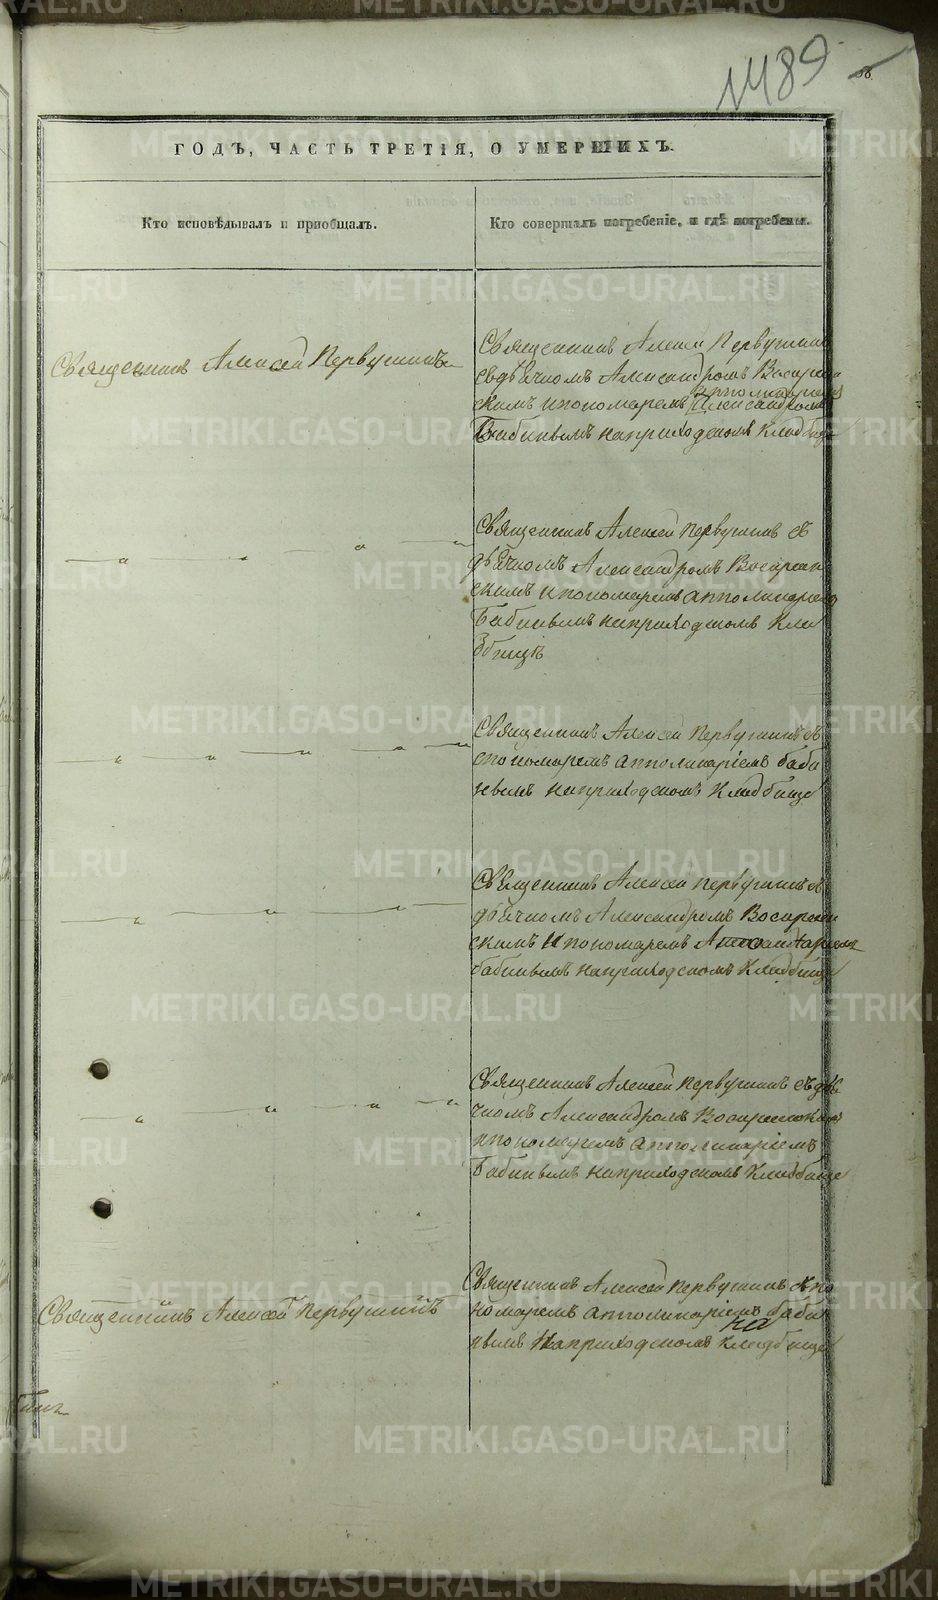 1489
58.
ГОДЪ, ЧАСТЬ ТРЕТІЯ, О УМЕРШИХЪ.
Кто исповѣдывалъ и пріобщалъ.
Кто совершалъ погребеніе, и гдѣ погребены.
Священникъ Алексей Первушинъ
Священникъ Алексей Первушинъ
съ дьячкомъ Александромъ Воскресен
скимъ и пономаремъ Апполинаріемъ
Бабинымъ на приходскомъ кладбище
Священникъ Алексей Первушинъ съ
дьячкомъ Александромъ Воскресен
скимъ и пономаремъ Апполинаріемъ
Бабинымъ на приходскомъ кла
дбищѣ
Священникъ Алексей Первушинъ съ
спономаремъ Апполинаріемъ Баби
нымъ на приходскомъ кладбище
Священникъ Алексей Первушинъ съ
дьячкомъ Александромъ Воскресен
скимъ и пономаремъ
бабинымъ на приходскомъ кладбище
Священникъ Алексей Первушинъ съ дья
чкомъ Александромъ Воскресенскимъ
и пономаремъ Апполинаріемъ
Бабинымъ на приходскомъ кладбище
Священникъ Алексей Первушинъ
Священникъ Алексей Первушинъ съ по
номаремъ Апполинаріемъ Баби
нымъ на приходскомъ кладбище
METRIKI.GASO-URAL.RU